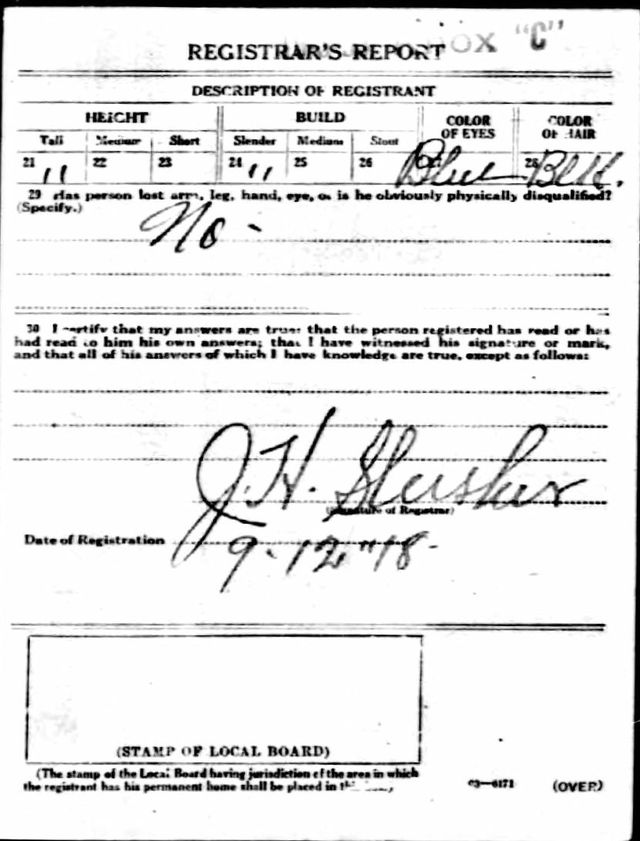 BOX "C"
REGISTRAR'S REPORT
DESCRIPTION OF REGISTRANT
HEIGHT BUILD COLOR OF EYES COLOR OF HAIR
Tall Medium Short Slender Medium Stout
21 " 22 23 24 " 25 26 27 Blue 28 Blk.
29 Has person lost arm, leg, hand, eye, or is he obviously physically disqualified?
(Specify.)
No -
30 I certify that my answers are true; that the person registered has read or has
had read to him his own answers; that I have witnessed his signature or mark,
and that all of his answers of which I have knowledge are true, except as follows:
J. H. Slusher
(Signature of Registrar)
Date of Registration 9-12-18-
(STAMP OF LOCAL BOARD)
(The stamp of the Local Board having jurisdiction of the area in which
the registrant has his permanent home shall be placed in
03-6171 (OVER)